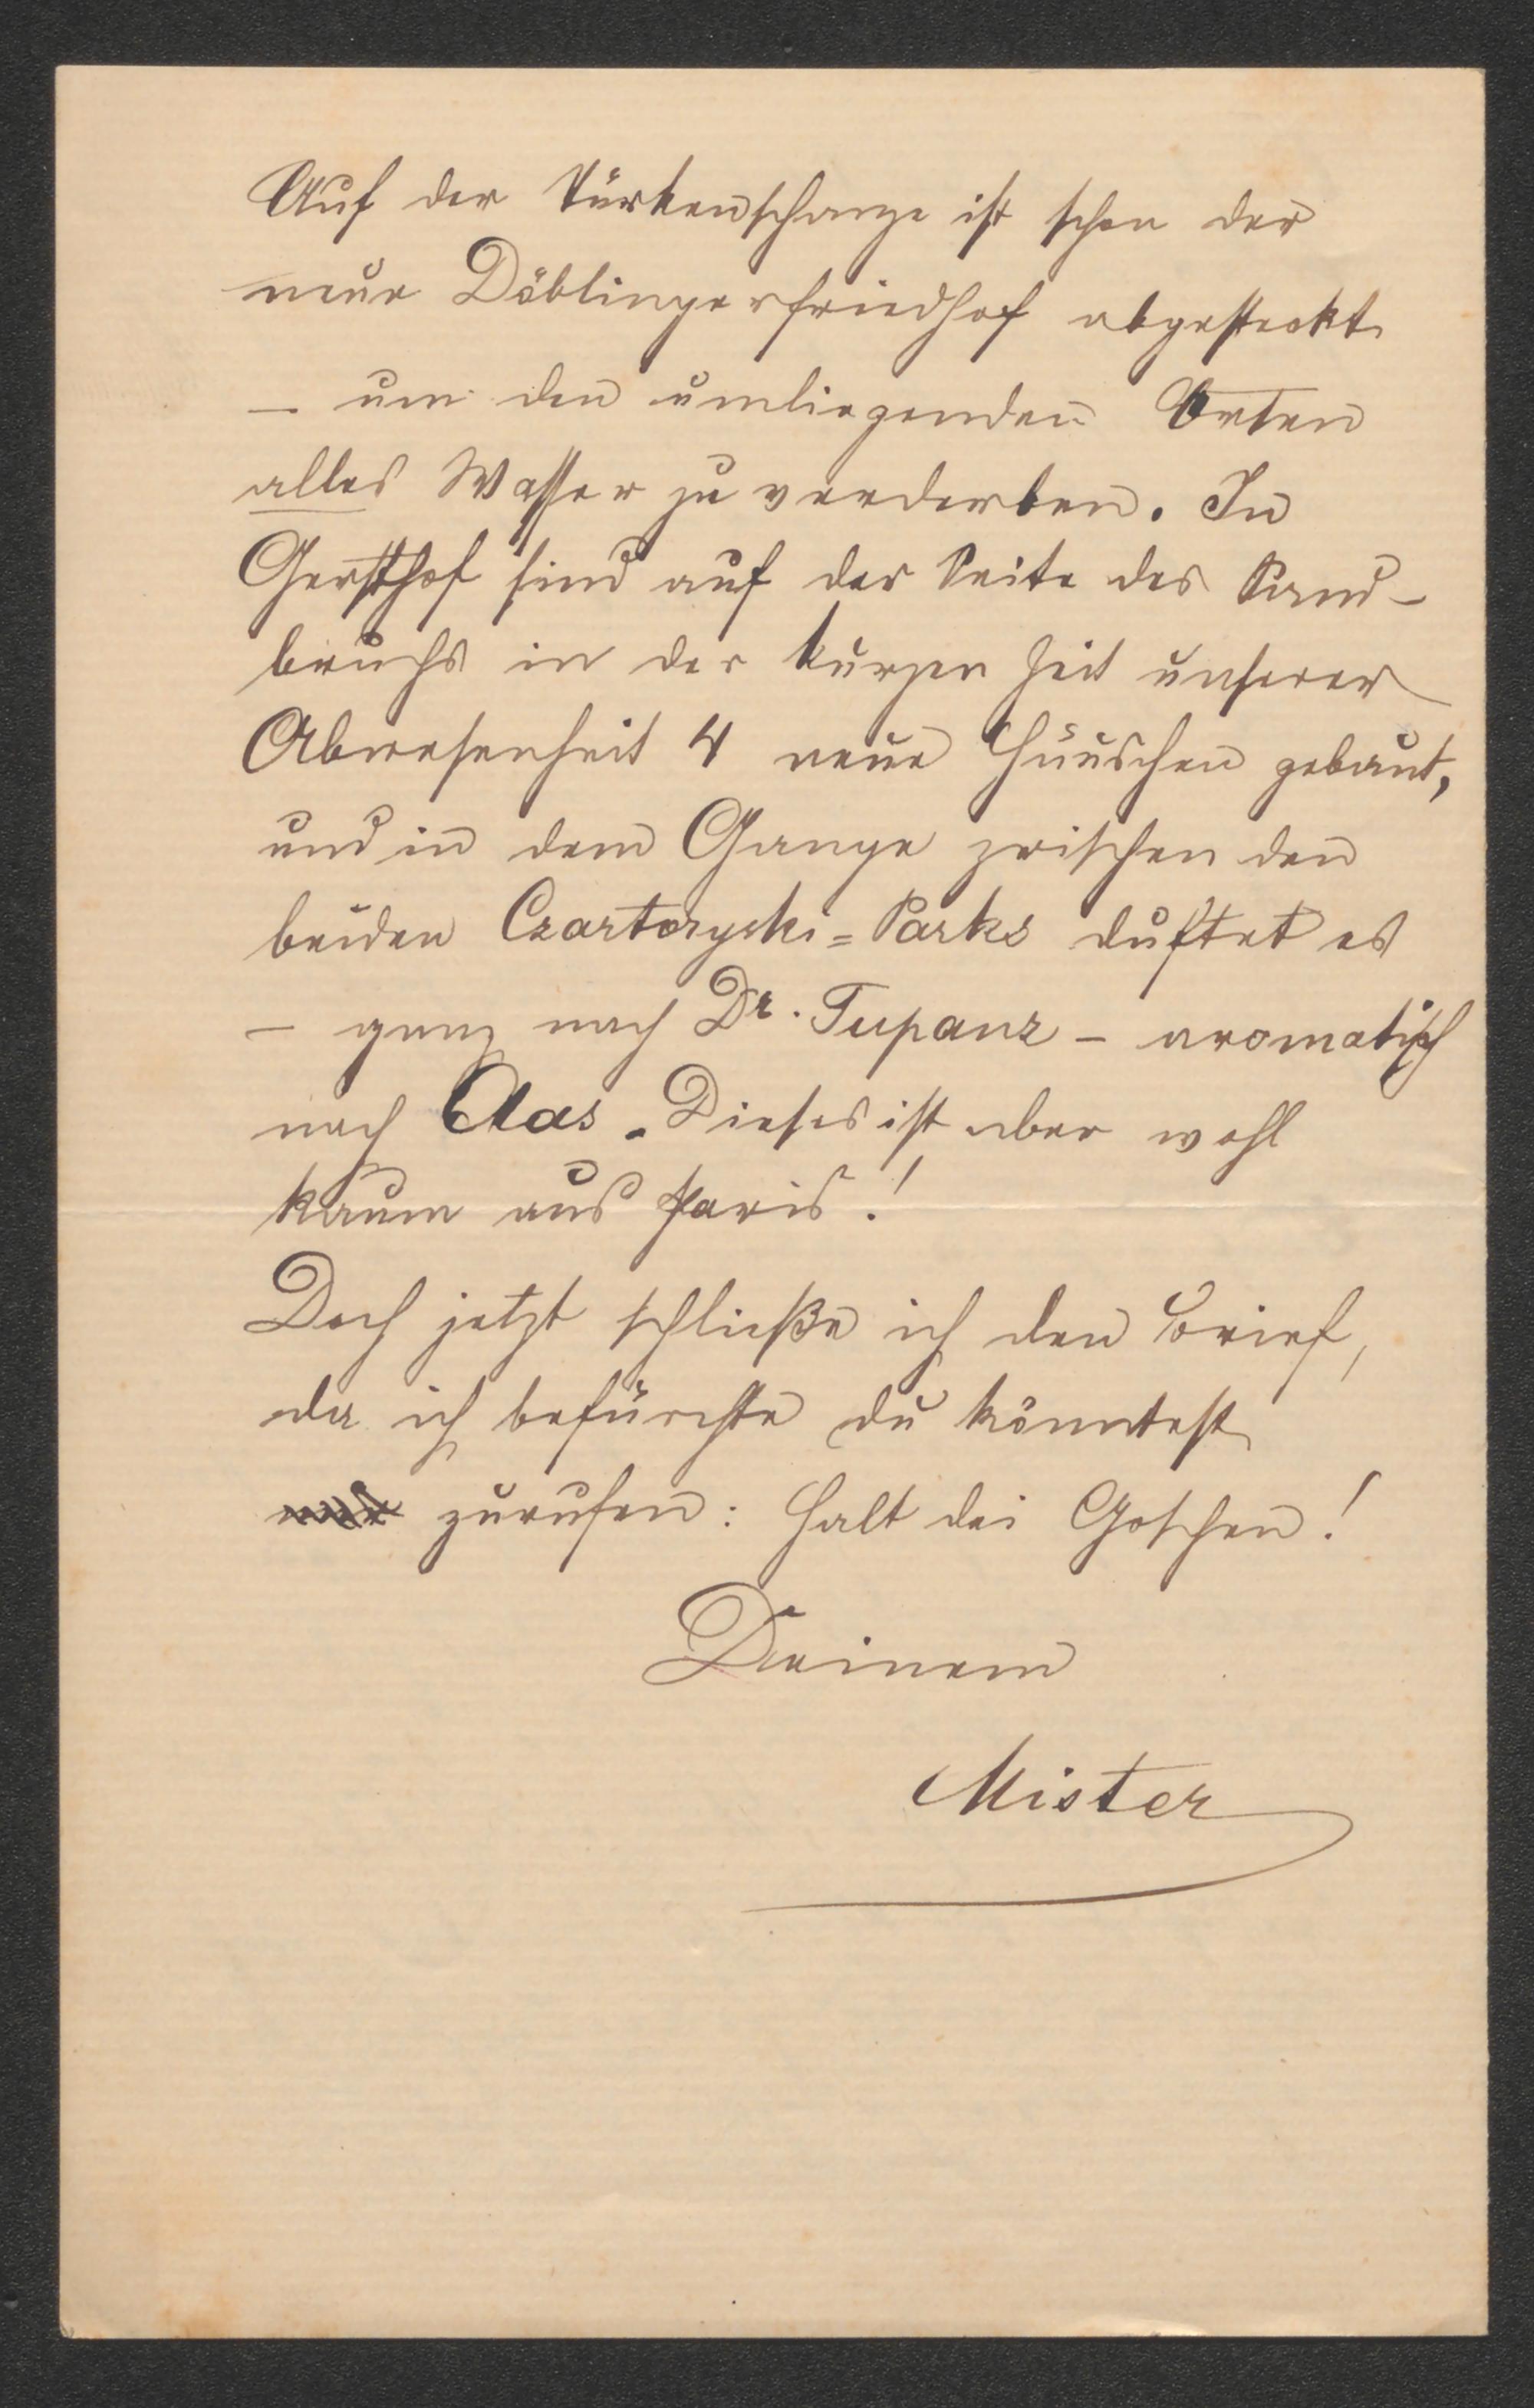 Auf der Türkenschanze ist schon der
neue Döblingerfriedhof abgesteckt
– um den umliegenden Orten
alles Wasser zu verderben. In
Gersthof sind auf der Seite des Sand-
bruchs in der kurzen Zeit unserer
Abwesenheit 4 neue Häuschen gebaut,
und in dem Gange zwischen den
beiden Czartoryski=Parks duftet es
– ganz nach Dr. Tupanz – aromatisch
nach Aas. Dieses ist aber wohl
kaum aus Paris!
Doch jetzt schließe ich den Brief,
da ich befürchte du könntest
zurufen: Halt dei Goschen!
Deinem
Mister